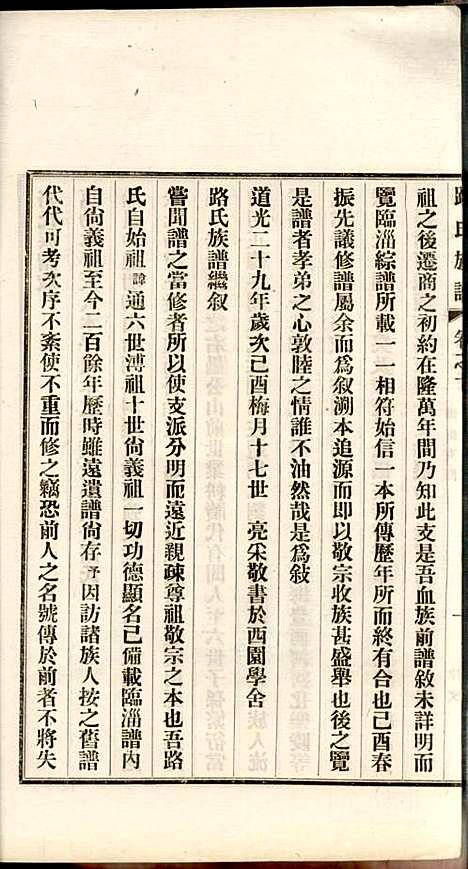 路氏族譜
祖之後遷商之初約在隆萬年間乃知此支是吾血族前譜敘未詳明而
覽臨淄綜譜所載一一相符始信一本所傳歷年所而終有合也己酉春
振先議修譜屬余而爲叙溯本追源而即以敬宗收族甚盛舉也後之覽
是譜者孝弟之心敦睦之情誰不油然哉是爲敍
道光二十九年歲次己酉梅月十七世 亮采敬書於西園學舍
路氏族譜繼叙
嘗聞譜之當修者所以使支派分明而遠近親疎尊祖敬宗之本也吾路
氏自始祖諱通六世溥祖十世尙義祖一切功德顯名已備載臨淄譜內
自尙義祖至今二百餘年歷時雖遠遺譜尙存予因訪諸族人按之舊譜
代代可考次序不紊使不重而修之竊恐前人之名號傳於前者不將失